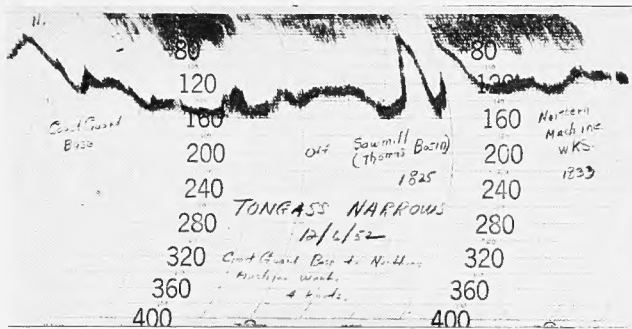 N.
80 80
120 120
160 160
200 200
240 240
280 280
320 320
360 360
400 400
Coast Guard
Base
Off Sawmill
(Thomas Basin)
1825
Northern
Machine
WKS.
1833
TONGASS NARROWS
12/6/52
Coast Guard Base to Northern
Machine Works
4 Knots.